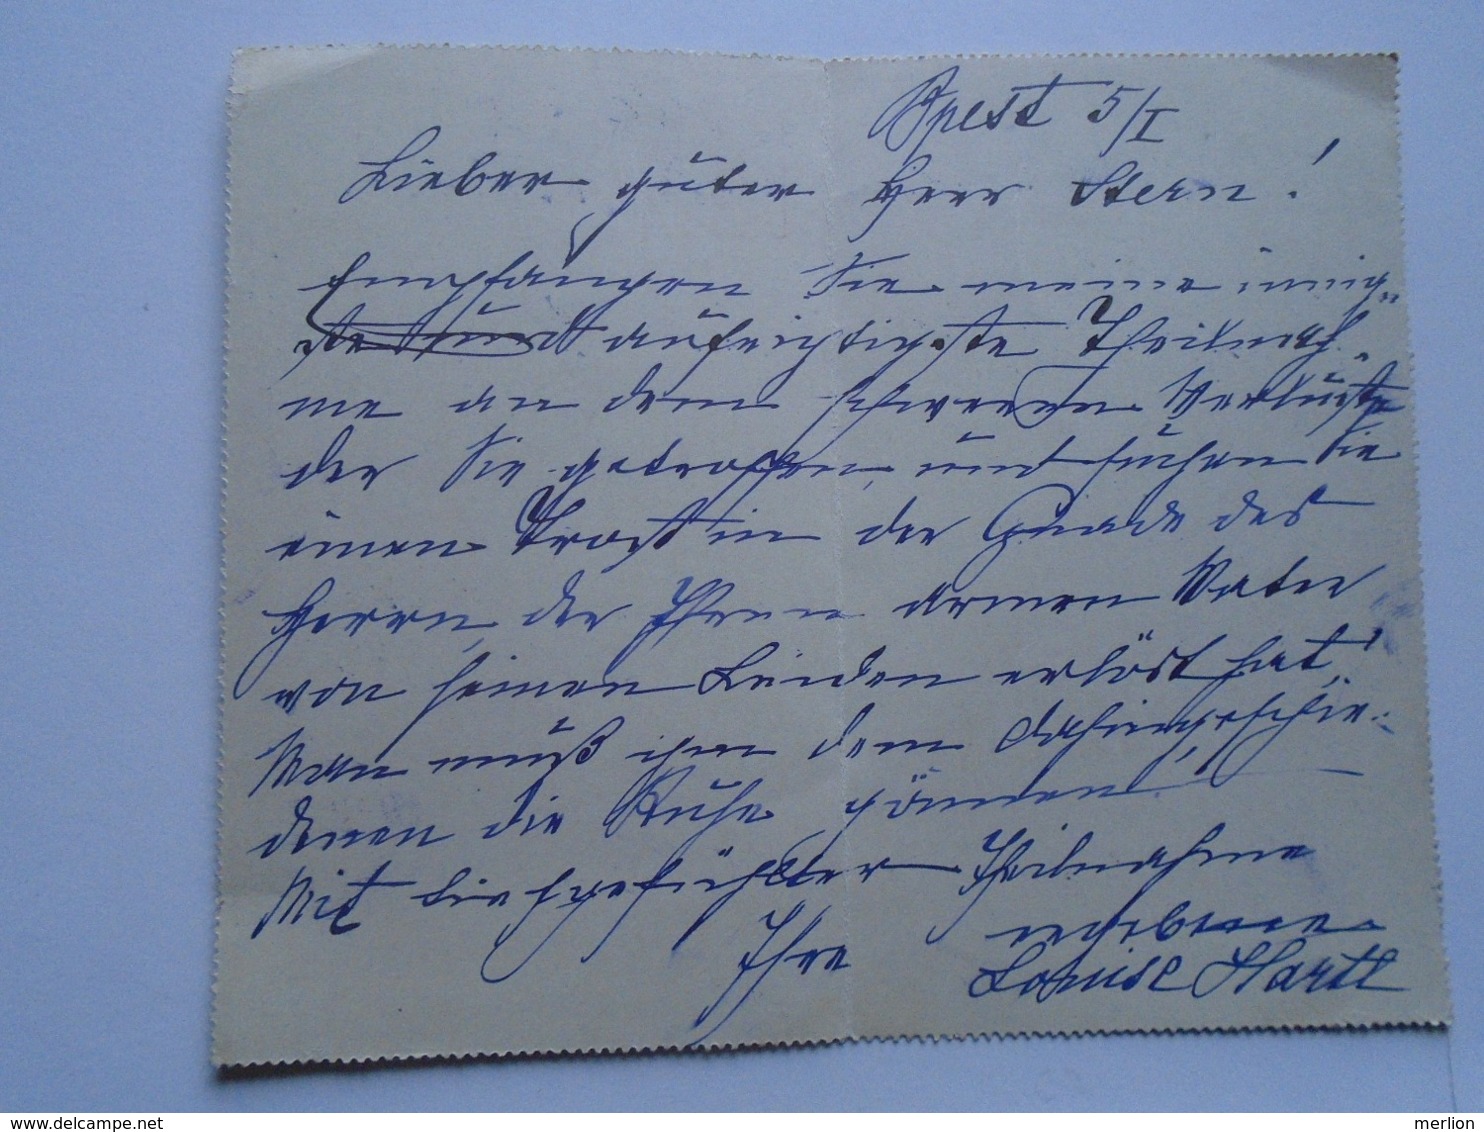 Bpest 5/I
Lieber guter Herr Stern!
Empfangen Sie meine innig-
ste und aufrichtigste Theilnah-
me an dem schweren Verluste
der Sie getroffen, und suchen Sie
einen Trost in der Gnade des
Herrn, der Ihren armen Vater
von seinen Leiden erlöst hat.
Man muß ihm dem dahingeschie-
denen die Ruhe gönnen,
Mit tiefgefühlter Theilnahme
Ihre ergebene
Louise Hartl
delcampe.net
merlion